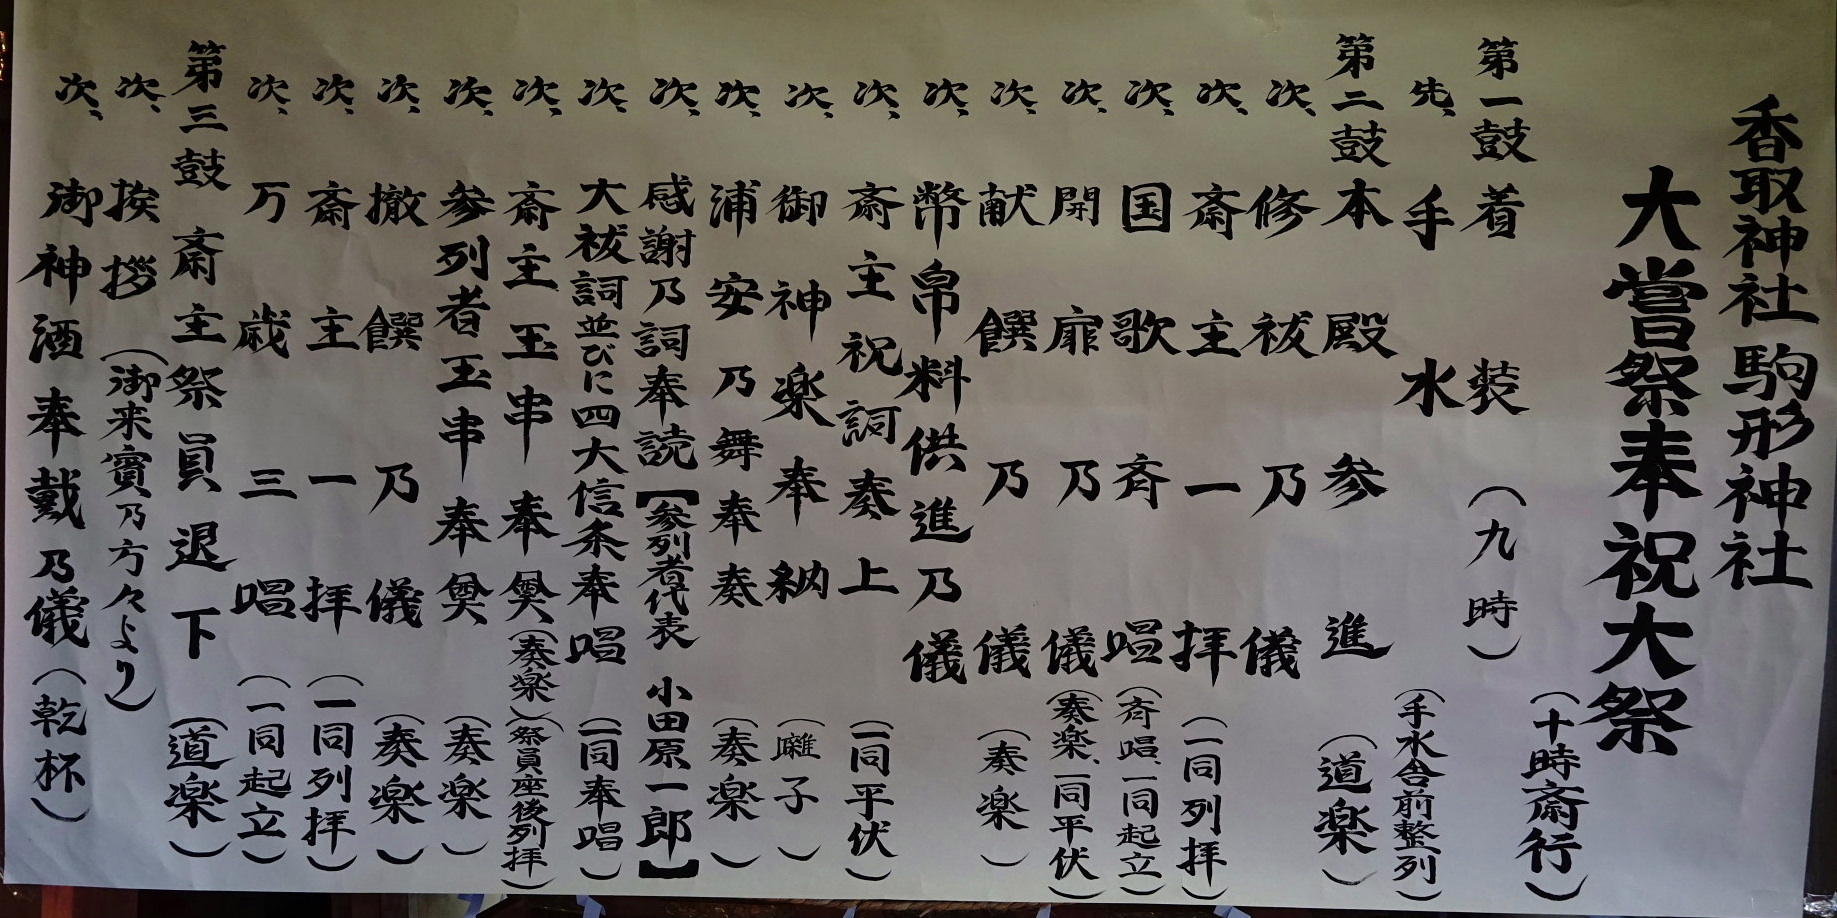 香取神社 駒形神社
大嘗祭奉祝大祭
(十時斎行)
第一鼓 着装 (九時)
先、手水 (手水舎前整列)
第二鼓 本殿参進 (道楽)
次、修祓乃儀
次、斎主一拝 (一同列拝)
次、国歌斉唱 (斉唱、一同起立)
次、開扉乃儀 (奏楽、一同平伏)
次、献饌乃儀 (奏楽)
次、幣帛料供進乃儀
次、斎主祝詞奏上 (一同平伏)
次、御神楽奉納 (囃子)
次、浦安乃舞奉奏 (奏楽)
次、感謝乃詞奉読【参列者代表 小田原一郎】
次、大祓詞並びに四大信条奉唱 (一同奉唱)
次、斎主玉串奉奠(奏楽)(祭員座後列拝)
次、参列者玉串奉奠 (奏楽)
次、撤饌乃儀 (奏楽)
次、斎主一拝 (一同列拝)
次、万歳三唱 (一同起立)
第三鼓 斎主祭員退下 (道楽)
次、挨拶 (御来賓乃方々より)
次、御神酒奉戴乃儀 (乾杯)